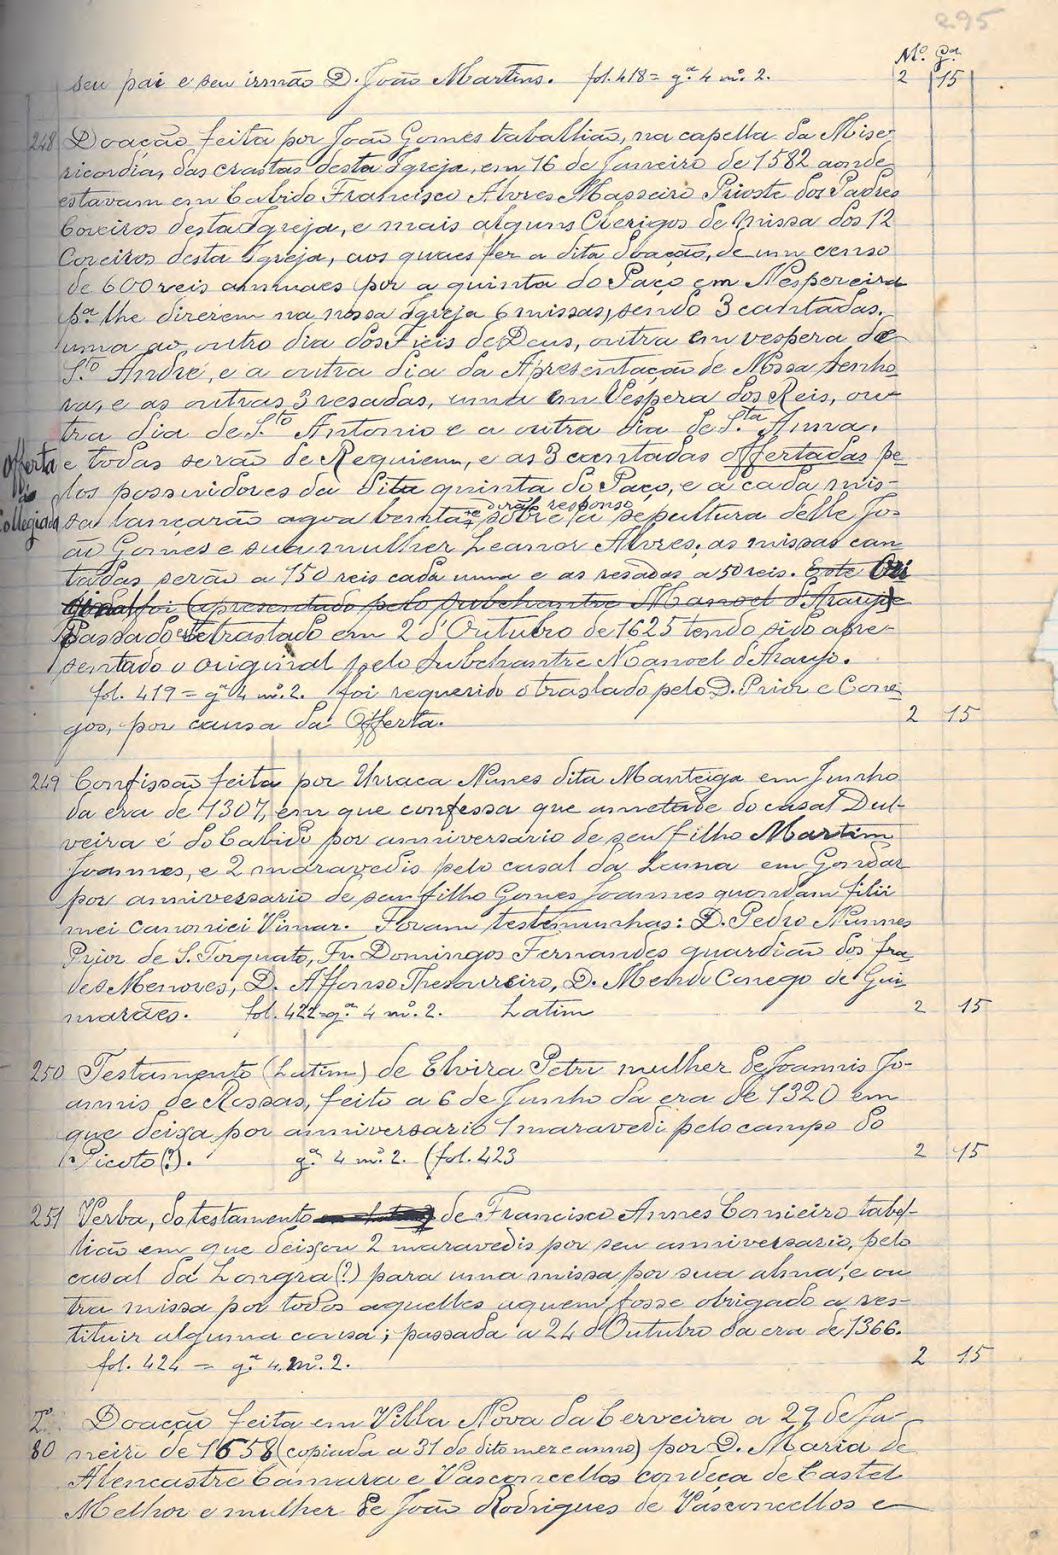 295
Mº. gª.
seu pai e seu irmão D. João Martins. fol. 418 = gª. 4 mº. 2. 2 15
248 Doação feita por João Gomes taballião, na capella da Mise-
ricordia, das crastas desta Igreja, em 16 de Janeiro de 1582 aonde
estavam em Cabido Francisco Alvres Masseiro Prioste dos Padres
Coreiros desta Igreja, e mais alguns Clerigos de missa dos 12
Coreiros desta Igreja, aos quaes fez a dita doação, de um censo
de 600 reis annuaes por a quinta do Paço em Nespereira
pª. lhe dizerem na nossa Igreja 6 missas, sendo 3 cantadas,
uma ao outro dia dos Fieis de Deus, outra em vespera de
S.to André, e a outra dia da Apresentação de Nossa Senho-
ra, e as outras 3 resadas, uma em Véspera dos Reis, ou-
tra dia de S.to Antonio e a outra dia de S.ta Anna.
Offerta e todas serão de Requiem, e as 3 cantadas offertadas pe-
á los possuidores da dita quinta do Paço, e a cada mis-
Collegiada sa lançarão agoa benta e dirão responso sobre a sepultura delle Jo-
ão Gomes e sua mulher Leanor Alvres; as missas can-
tadas serão a 150 reis cada uma e as resadas a 50 reis. Este Ori
ginal foi apresentado pelo subchantre Manoel d'Araujo
Passado este traslado em 2 d'Outubro de 1625 tendo sido apre-
sentado o original pelo subchantre Manoel d'Araujo.
fol. 419 = gª 4 mº. 2. foi requerido o traslado pelo D. Prior e Cone-
gos, por causa da Offerta. 2 15
249 Confissão feita por Urraca Nunes dita Manteiga em Junho
da era de 1307, em que confessa que ametade do casal Dul-
veira é do Cabido por anniversario de seu filho Martim
Joannes, e 2 maravedis pelo casal da Lama em Gondar
por anniversario de seu filho Gomes Joannes quondam filii
mei canonici Vimar. Foram testemunhas: D. Pedro Nunnes
Prior de S. Torquato, Fr. Domingos Fernandes guardião dos fra-
des Menores, D. Affonso Thesoureiro, D. Mendo Conego de Gui-
marães. fol. 422 = gª. 4 mº. 2. Latim 2 15
250 Testamento (Latim) de Elvira Petri mulher de Joannis Jo-
annis de Rossas, feito a 6 de Junho da era de 1320 em
que deixa por anniversario 1 maravedi pelo campo do
Picoto (?). gª. 4 mº. 2. (fol. 423 2 15
251 Verba, do testamento de Francisco Annes Cornieiro tabel-
lião em que deixou 2 maravedis por seu anniversario, pelo
casal da Longra (?) para uma missa por sua alma, e ou
tra missa por todos aquelles aquem fosse obrigado a res-
tituir alguma cousa; passada a 24 d'Outubro da era de 1366.
fol. 424 = gª. 4 mº. 2. 2 15
Doação feita em Villa Nova da Cerveira a 29 de Ja-
80 neiro de 1658 (copiada a 31 do dito mez e anno) por D. Maria de
Alencastre Camara e Vasconcellos condeça de Castel
Melhor e mulher de João Rodrigues de Vasconcellos e